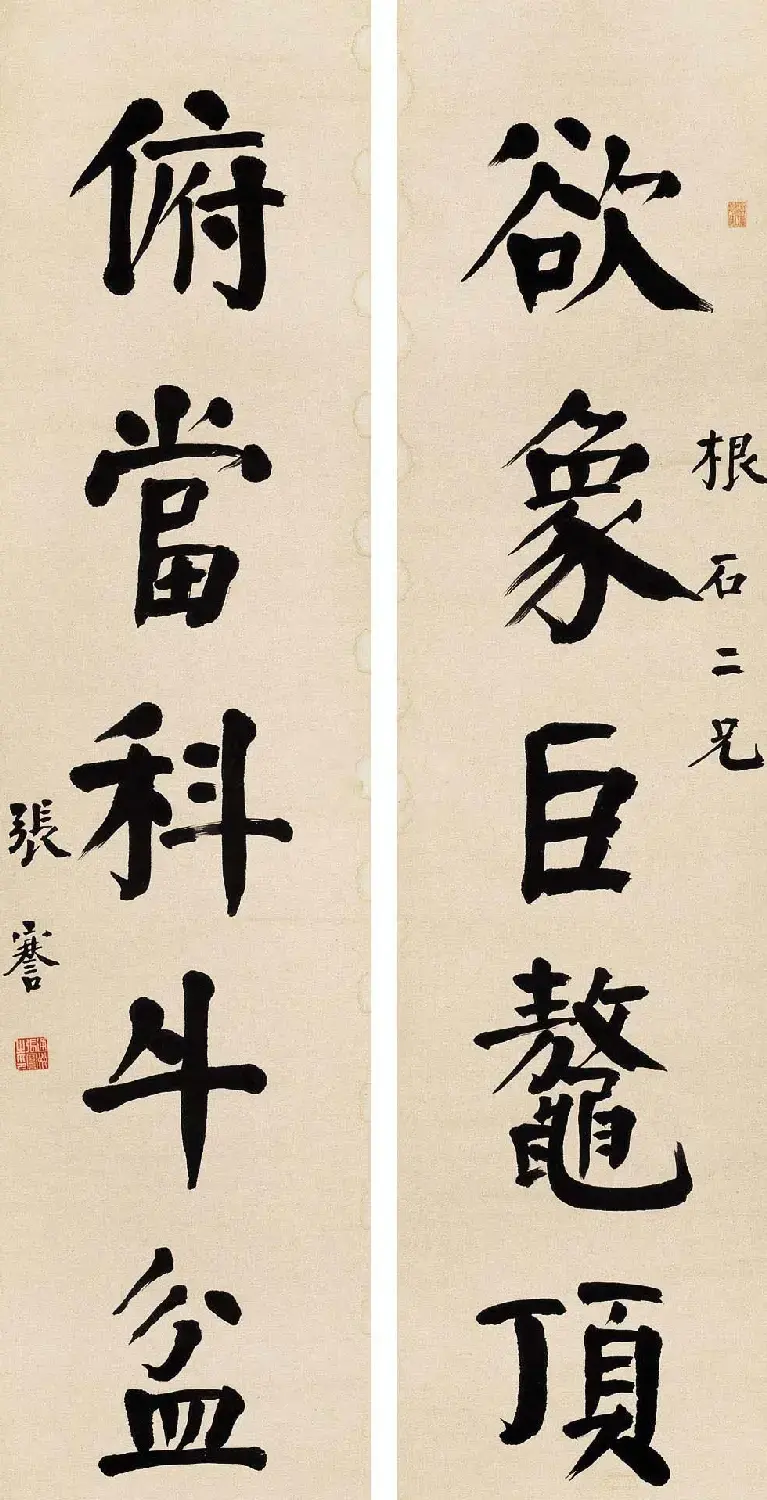 欲象巨鼇頂
根石二兄
俯當科斗盆
張謇